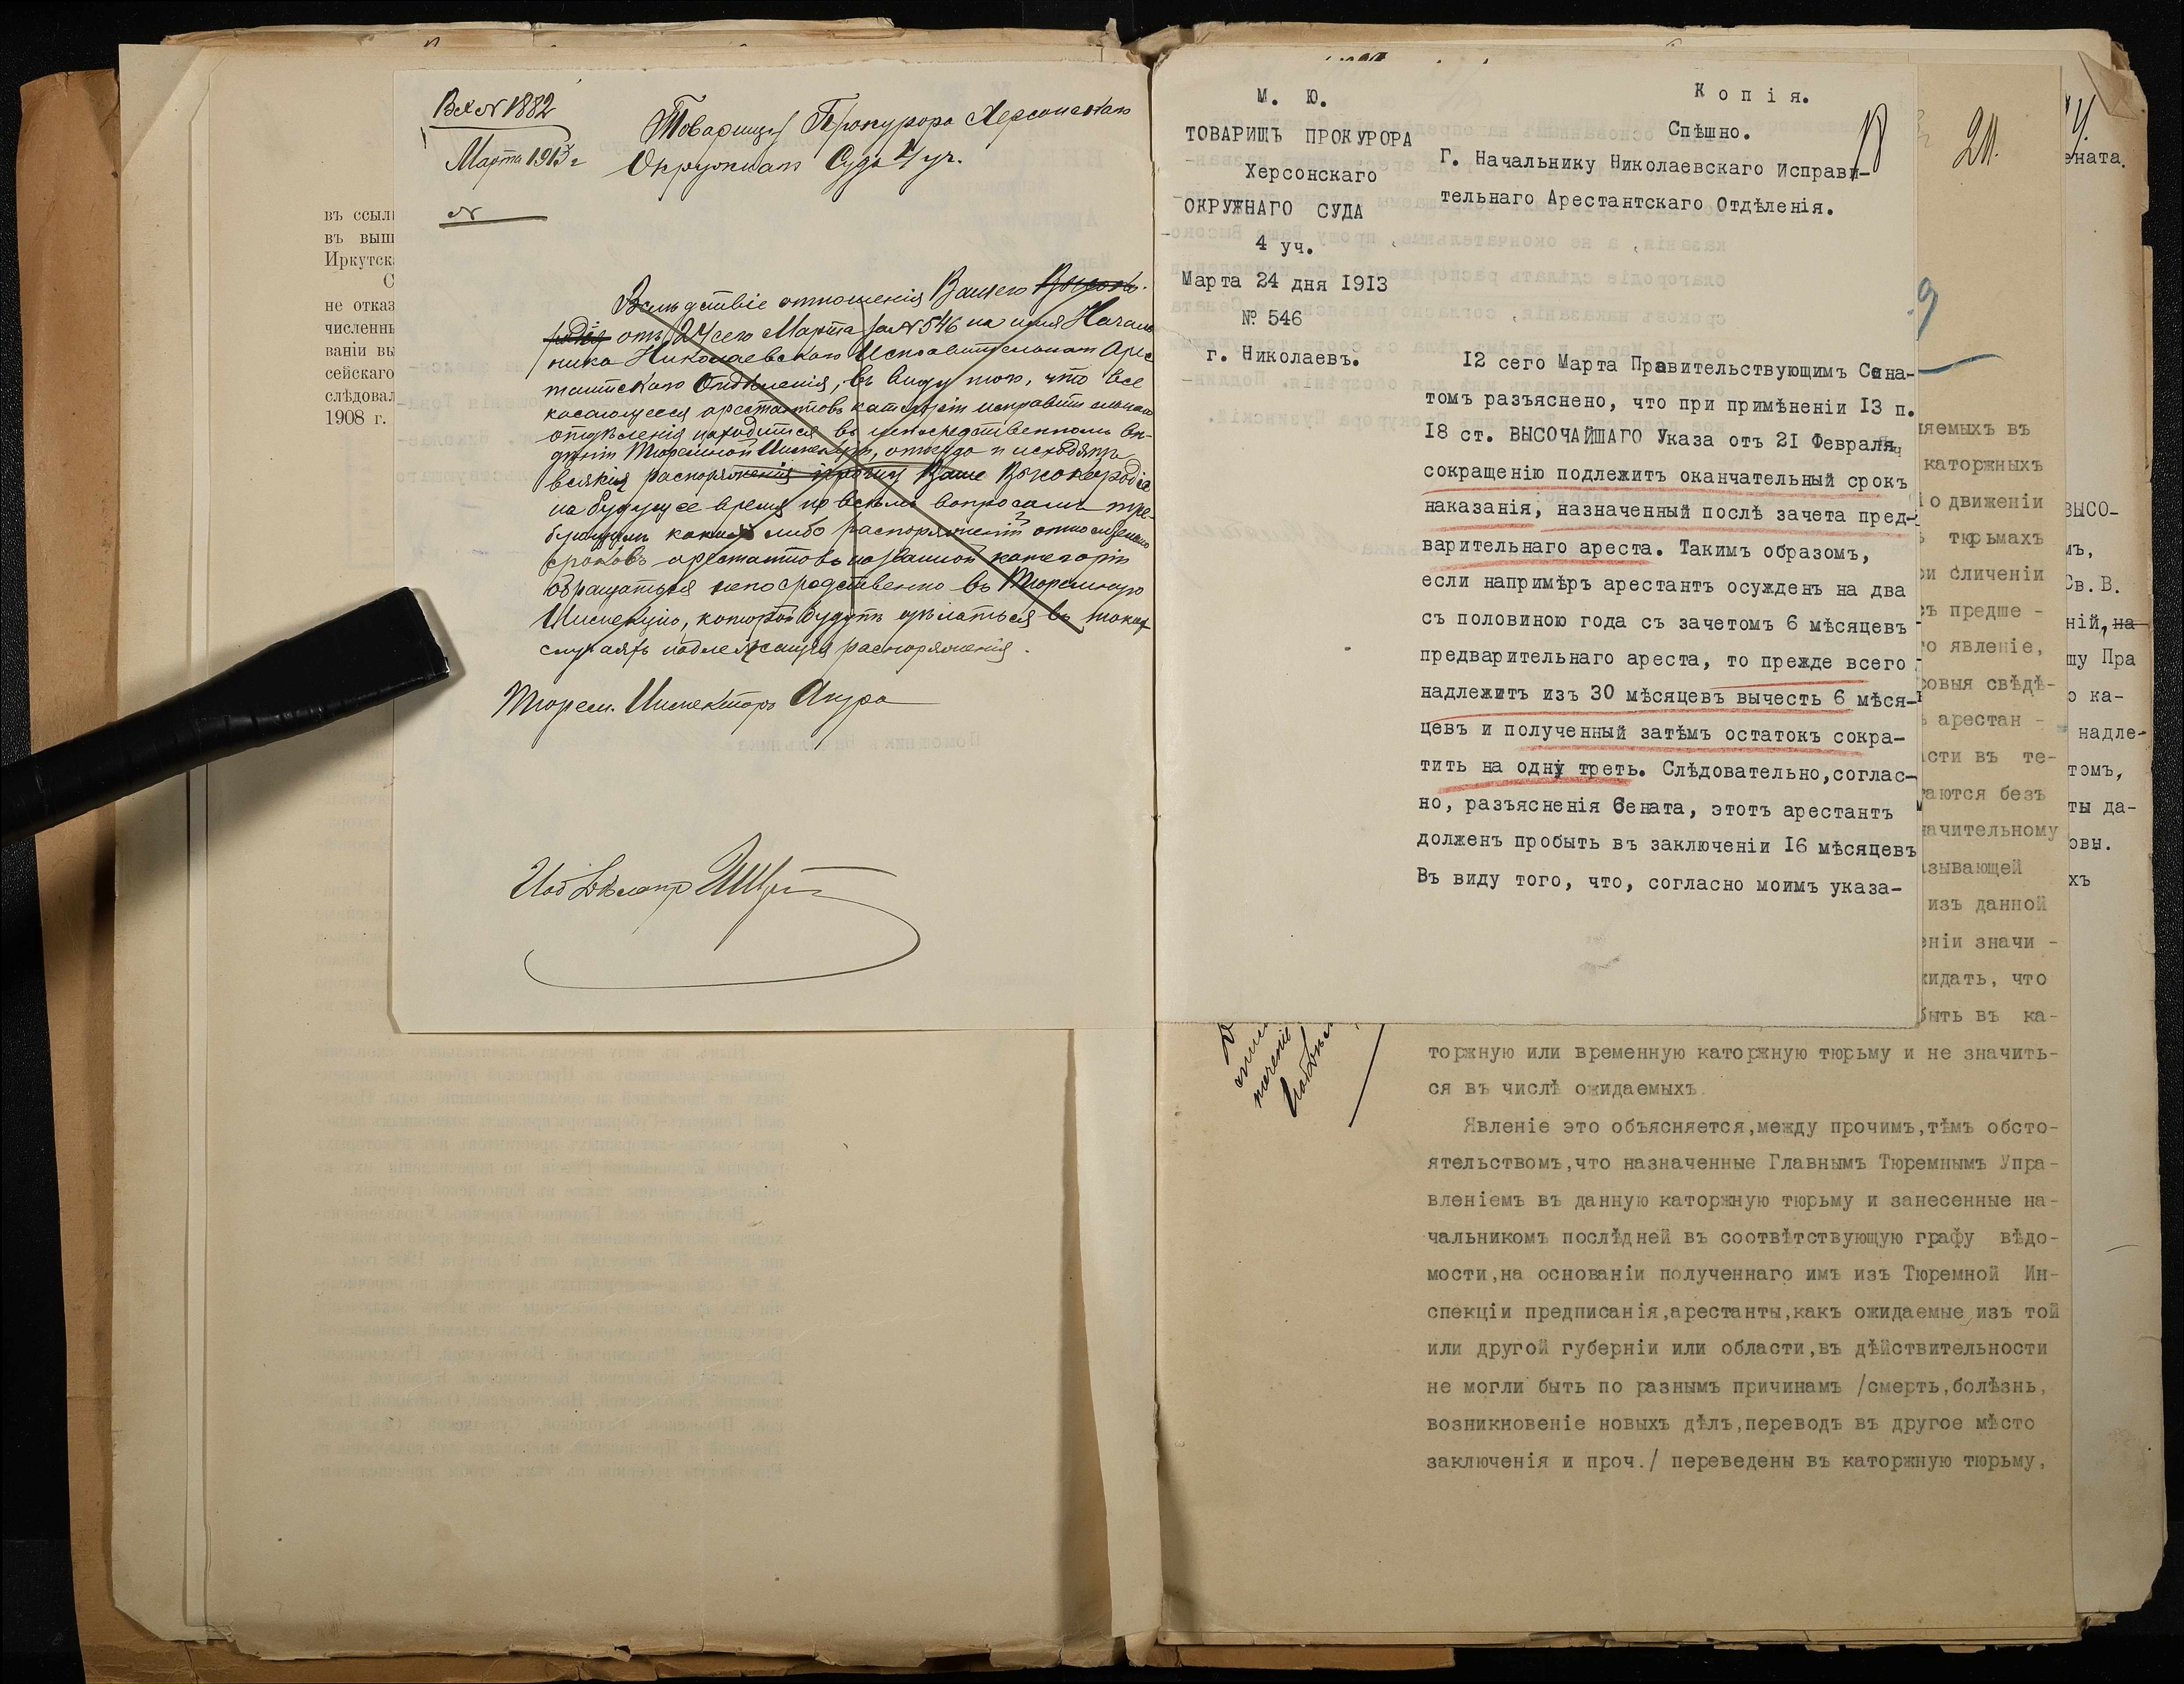 Вх № 1882
Марта 1913 г
№
Товарищу Прокурора Херсонскаго
Окружнаго Суда 4 уч.
Вслѣдствіе отношенія Вашего Высоко-
родія отъ 24 сего Марта за № 546 на имя Началь
ника Николаевскаго Исправительнаго Арес
тантскаго Отдѣленія, въ виду того, что все
касающееся арестантовъ категоріи исправительнаго
отдѣленія находится въ непосредственномъ вѣ-
дѣніи Тюремной Инспекціи, откуда и исходятъ
всякія распоряженія прошу Ваше Высокородіе
на будущее время по всѣмъ вопросамъ тре-
бующимъ какихъ либо распоряженій относительно
сроковъ арестантовъ названной категоріи
обращаться непосредственно въ Тюремную
Инспекцію, которой будутъ дѣлаться въ такихъ
случаяхъ надлежащія распоряженія.
Тюрем. Инспекторъ
въ ссыл
въ выш
Иркутск
С
не отказ
численн
ваніи вы
сейскаго
слѣдовал
1908 г.
М. Ю.
ТОВАРИЩЪ ПРОКУРОРА
Херсонскаго
ОКРУЖНАГО СУДА
4 уч.
Марта 24 дня 1913
№ 546
г. Николаевъ.
Копія.
Спѣшно.
18
Г. Начальнику Николаевскаго Исправи-
тельнаго Арестантскаго Отдѣленія.
12 сего Марта Правительствующимъ Сена-
томъ разъяснено, что при примѣненіи 13 п.
18 ст. ВЫСОЧАЙШАГО Указа отъ 21 Февраля,
сокращенію подлежитъ оканчательный срокъ
наказанія, назначенный послѣ зачета пред-
варительнаго ареста. Такимъ образомъ,
если напримѣръ арестантъ осужденъ на два
съ половиною года съ зачетомъ 6 мѣсяцевъ
предварительнаго ареста, то прежде всего
надлежитъ изъ 30 мѣсяцевъ вычесть 6 мѣся-
цевъ и полученный затѣмъ остатокъ сокра-
тить на одну треть. Слѣдовательно,соглас-
но, разъясненія Сената, этотъ арестантъ
долженъ пробыть въ заключеніи 16 мѣсяцевъ
Въ виду того, что, согласно моимъ указа-
21.
9
ляемыхъ въ
каторжныхъ
о движеніи
тюрьмахъ
ри сличеніи
съ предше -
го явленіе,
ровыя свѣдѣ-
арестан -
сти въ те-
гаются безъ
начительному
азывающей
изъ данной
еніи значи -
жидать, что
быть въ ка-
торжную или временную каторжную тюрьму и не значить-
ся въ числѣ ожидаемыхъ.
Явленіе это объясняется,между прочимъ,тѣмъ обсто-
ятельствомъ,что назначенные Главнымъ Тюремнымъ Упра-
вленіемъ въ данную каторжную тюрьму и занесенные на-
чальникомъ послѣдней въ соотвѣтствующую графу вѣдо-
мости,на основаніи полученнаго имъ изъ Тюремной Ин-
спекціи предписанія,арестанты,какъ ожидаемые изъ той
или другой губерніи или области,въ дѣйствительности
не могли быть по разнымъ причинамъ /смерть,болѣзнь,
возникновеніе новыхъ дѣлъ,переводъ въ другое мѣсто
заключенія и проч./ переведены въ каторжную тюрьму,
ената.
ВЫСО-
мъ,
Св.В.
ній, на
шу Пра
о ка-
надле-
томъ,
ты да-
овы.
хъ